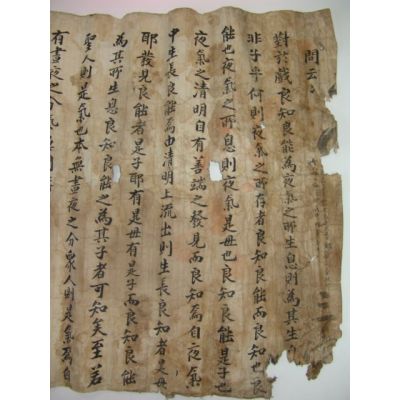 問云云
對於戲良知良能爲夜氣之所生息則爲其生
非子乎何則夜氣之所存者良知良能而良知也良
能也夜氣之所息則夜氣是母也良知良能是子也
夜氣之清明自有善端之發見而良知爲自夜氣
中生長良能爲由清明上流出則生長良知者是母
耶發見良能者是子耶有是母有是子而良知良能
爲其所生息良知良能之爲其子者可知矣至若
聖人則是氣也本無晝夜之分衆人則是氣爲自
有晝夜之分